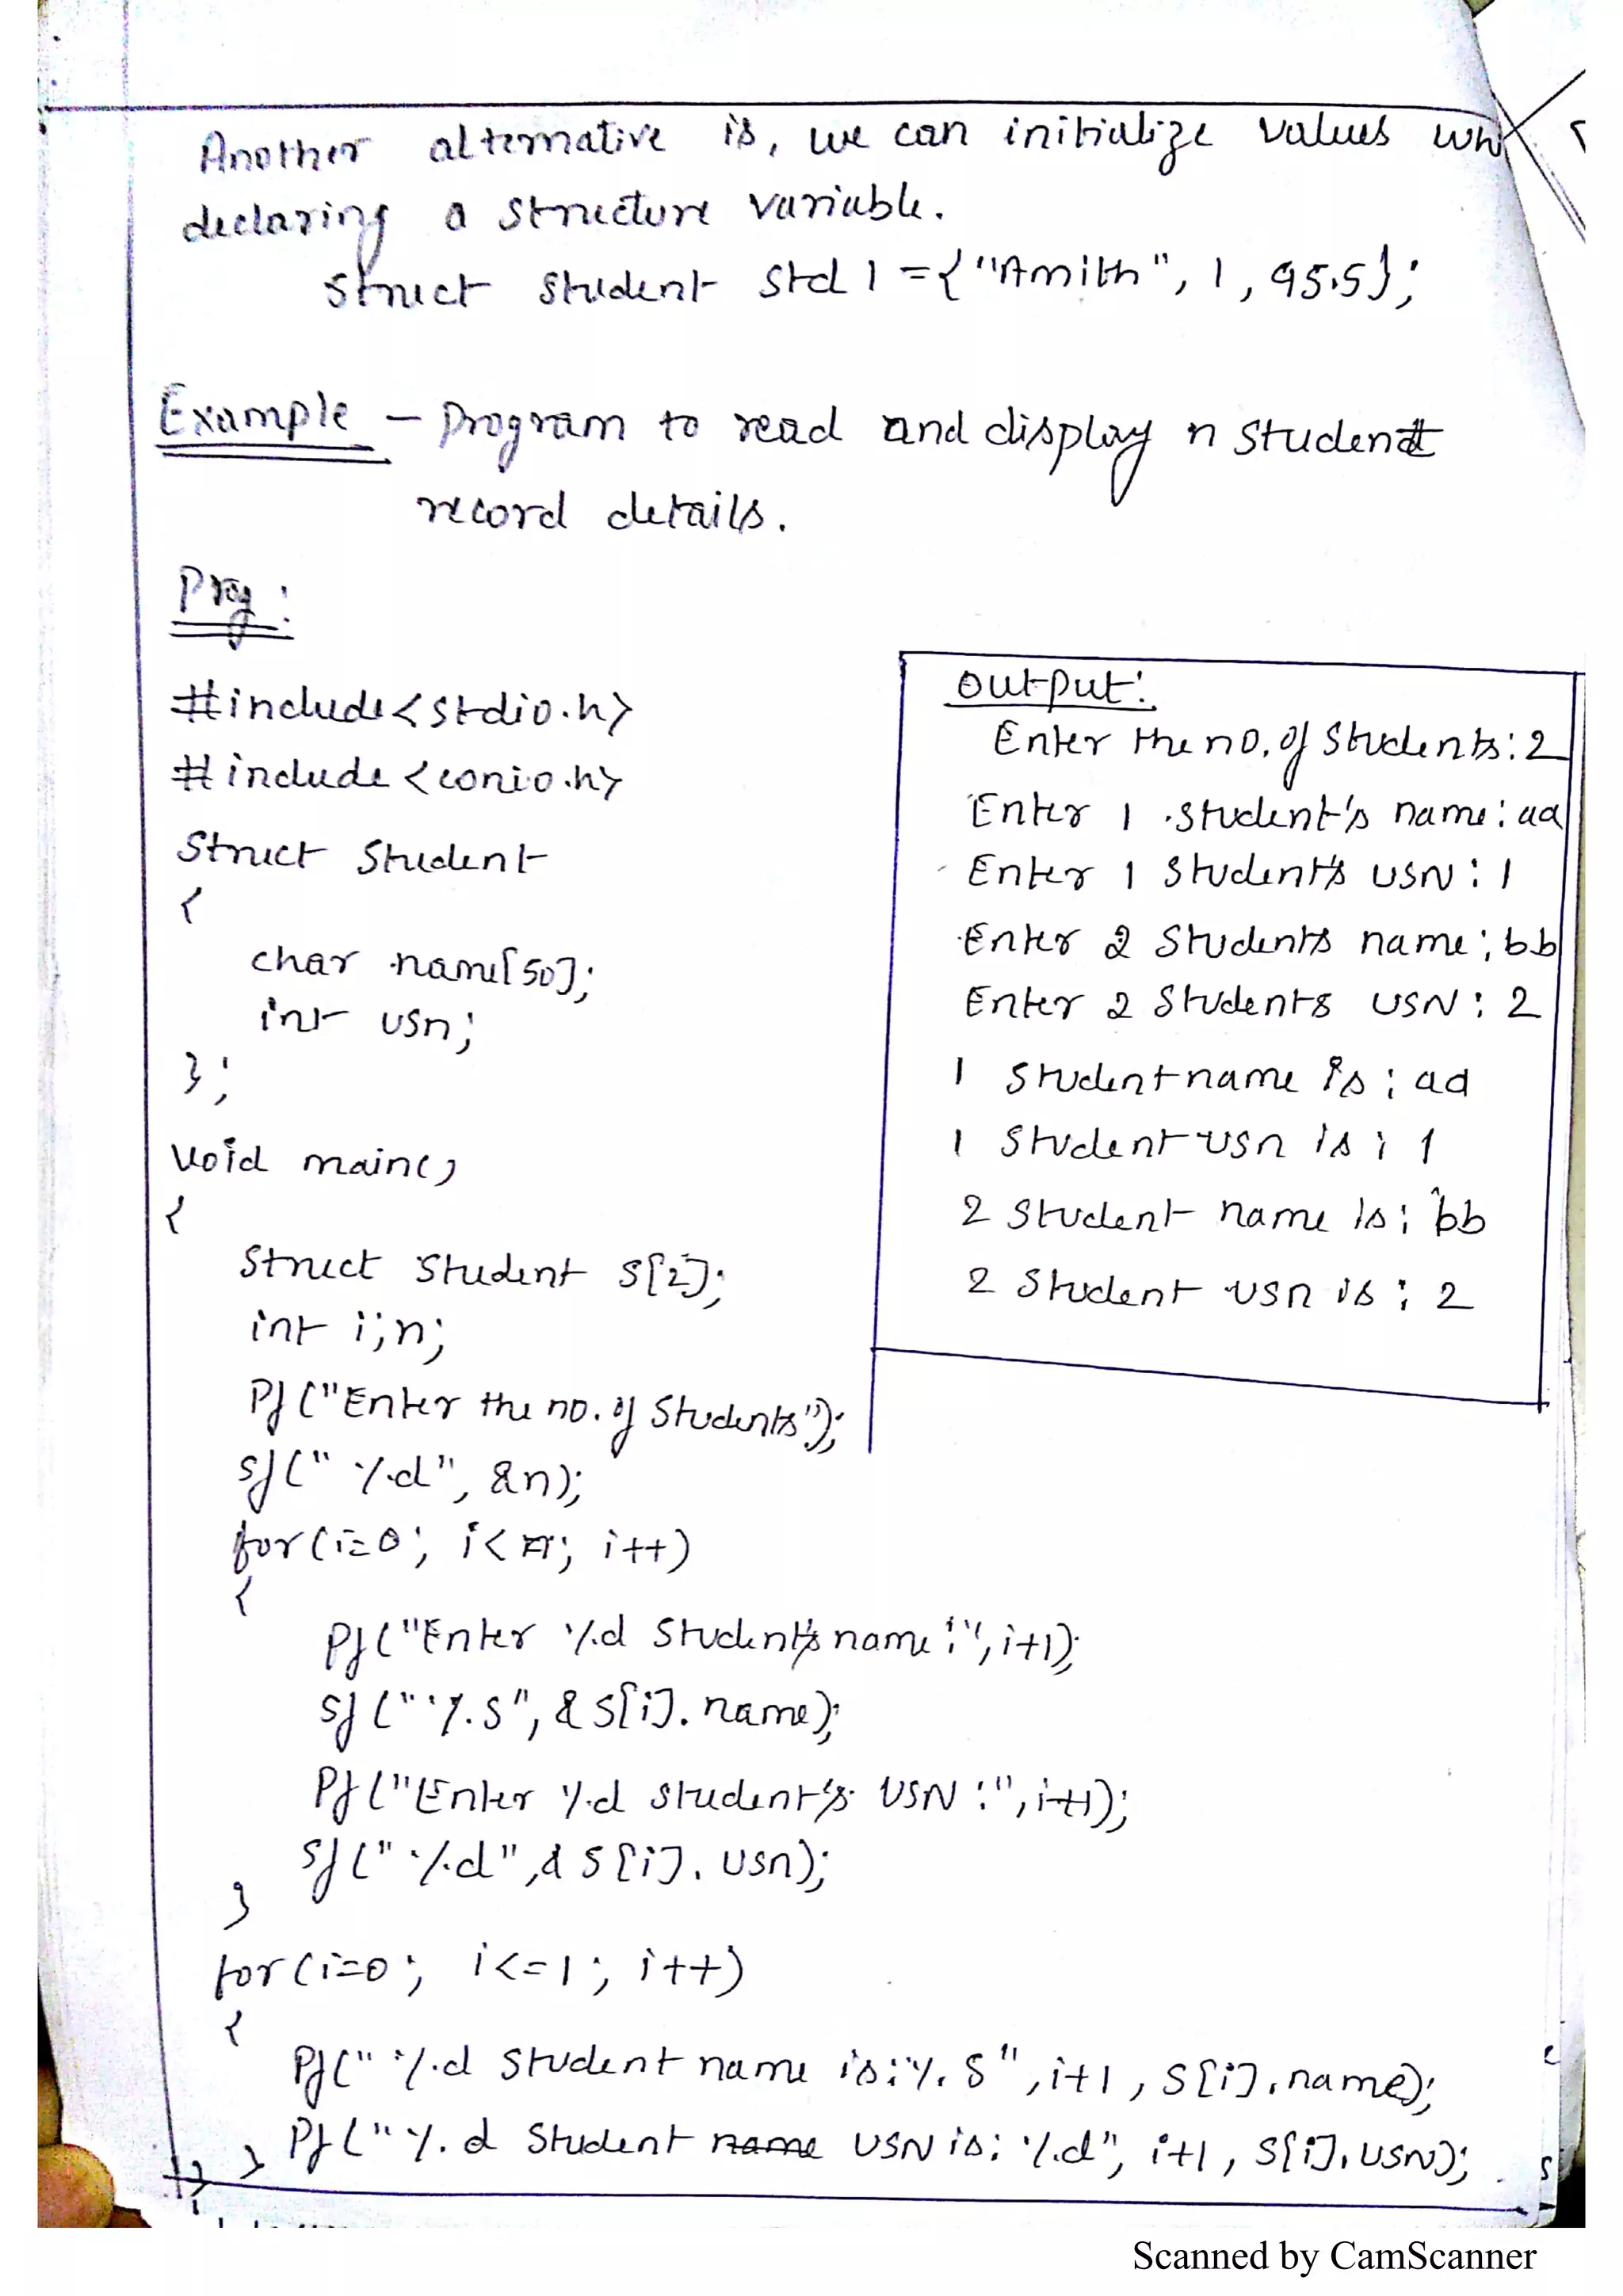 Another alternative is, we can initialize values wh
declaring a structure variable.
struct student std 1 = {"Amith", 1, 95.5};
Example - Program to read and display n student
record details.
Prog:
#include<stdio.h>
#include <conio.h>
struct student
{
char name[50];
int usn;
};
void main()
{
struct student s[2];
int i,n;
Pf("Enter the no. of students");
sf("%d", &n);
for(i=0; i<n; i++)
{
Pf("Enter %d student's name:", i+1);
sf("%s", & s[i].name);
Pf("Enter %d student's USN:", i+1);
sf("%d", & s[i].usn);
}
for(i=0; i<=1; i++)
{
Pf("%d student name is:%s", i+1, s[i].name);
} Pf("%d student name USN is: %d", i+1, s[i].USN);
}
output:
Enter the no. of students:2
Enter 1 student's name: aa
Enter 1 student's USN: 1
Enter 2 students name: bb
Enter 2 students USN: 2
1 student name is: aa
1 student usn is: 1
2 student name is: bb
2 student usn is: 2
Scanned by CamScanner